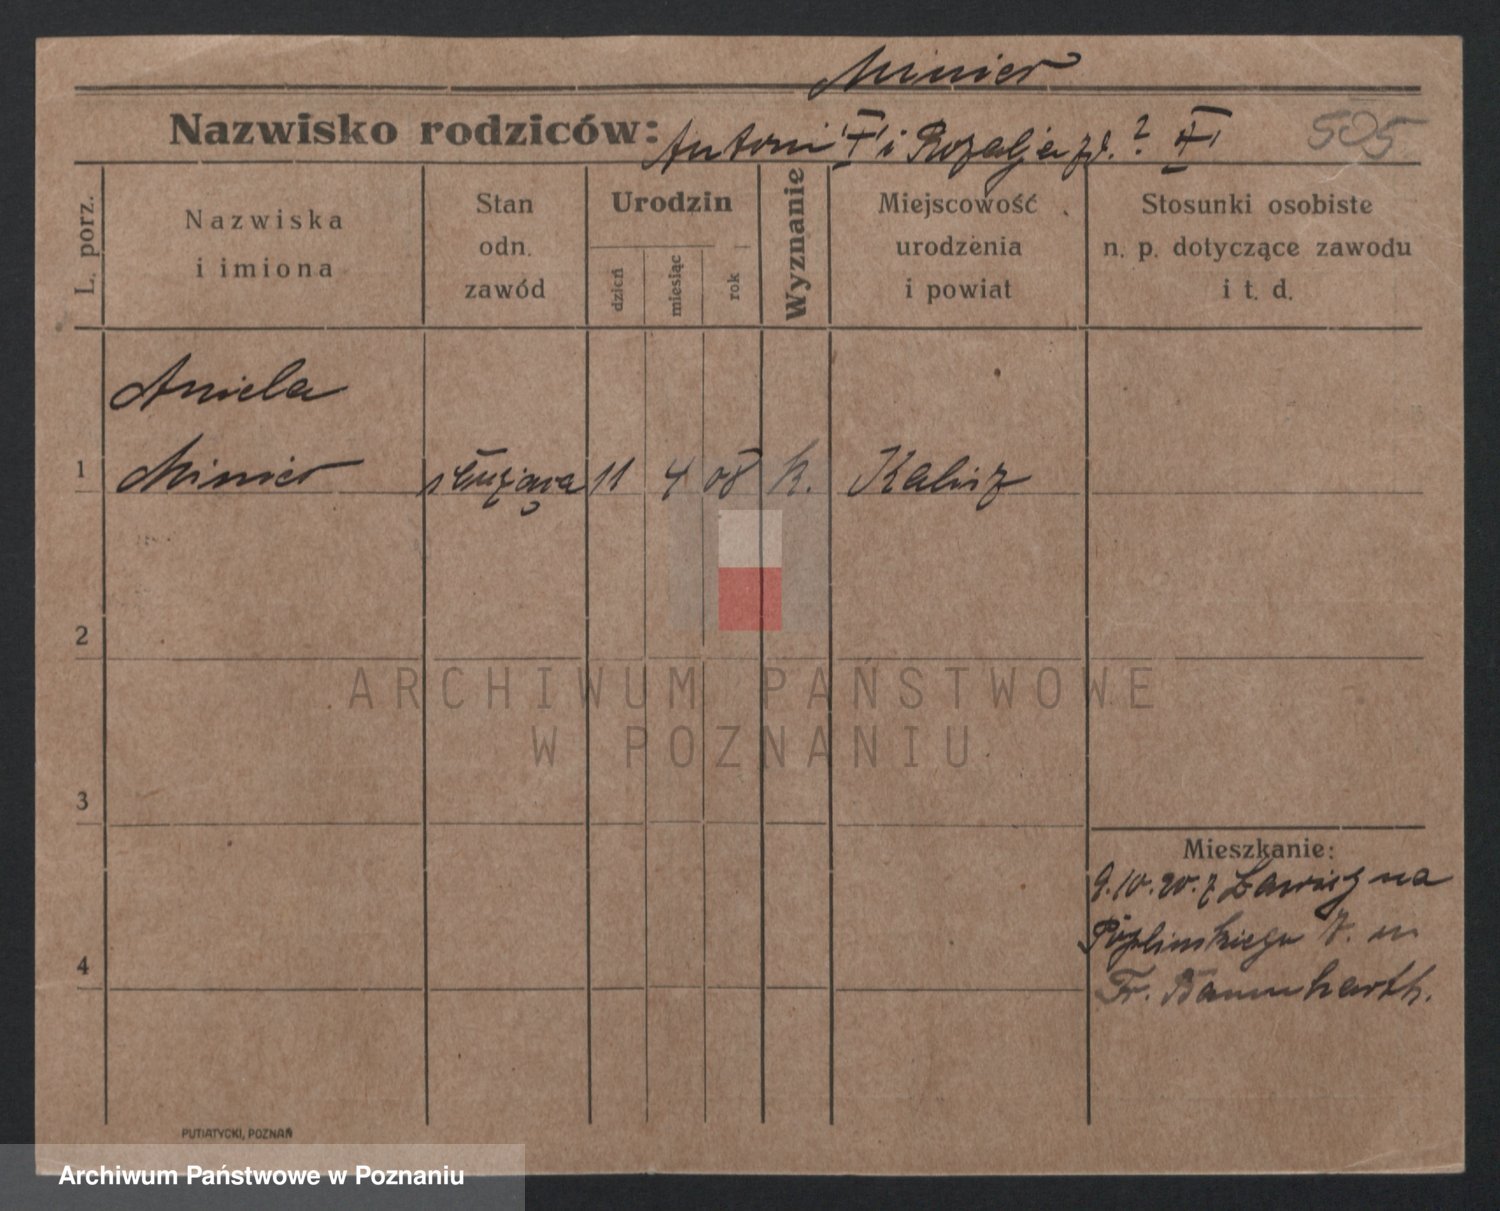 Minier
Nazwisko rodziców: Antoni i Rozalja zd. ? 505
L. porz.
Nazwiska i imiona
Stan odn. zawód
Urodzin
dzień
miesiąc
rok
Wyznanie
Miejscowość urodzenia i powiat
Stosunki osobiste n. p. dotyczące zawodu i t. d.
Aniela
1 Minier służąca 11 4 08 k. Kalisz
2
ARCHIWUM PAŃSTWOWE
W POZNANIU
3
Mieszkanie:
9.10. z na
4 m
Fr. Baumharth.
PUTIATYCKI, POZNAŃ
Archiwum Państwowe w Poznaniu